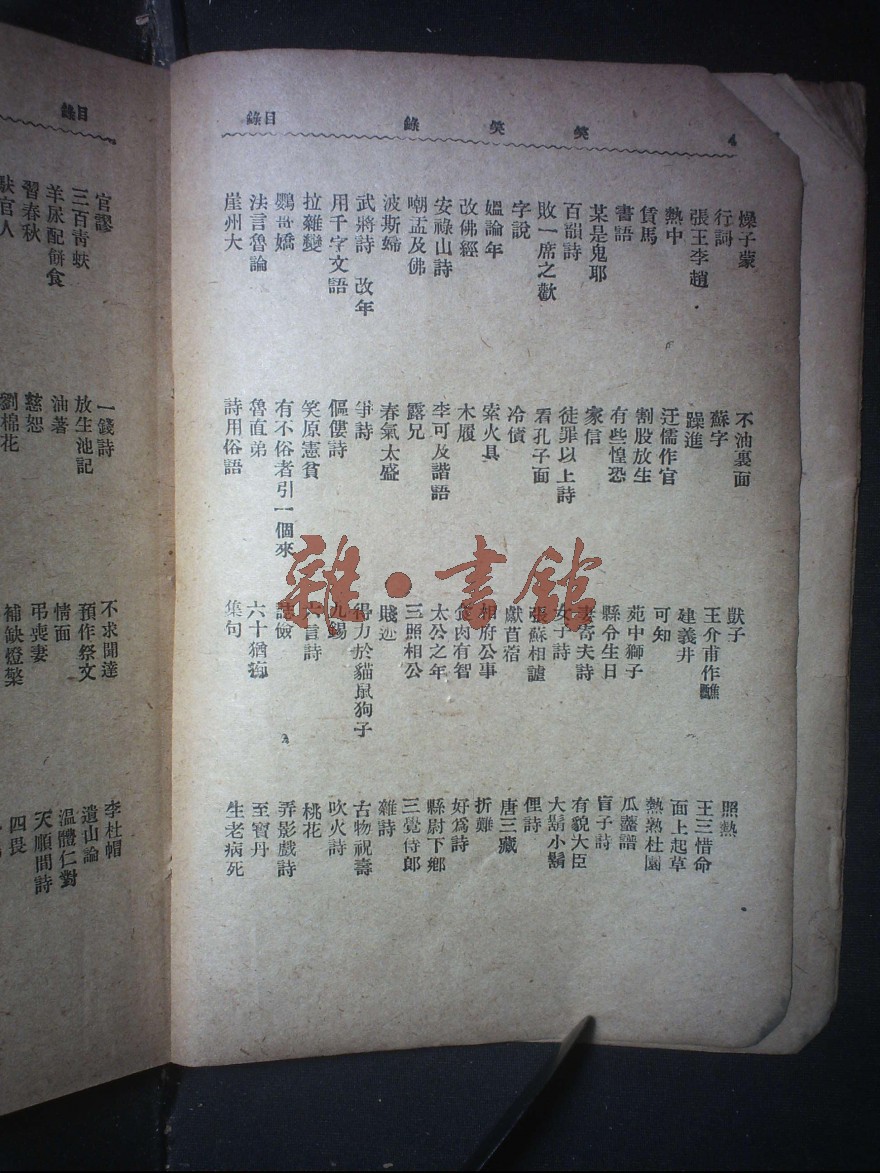 4
笑笑錄
目錄
燥子蒙
行詞
張王李趙
熱中
賃馬
書語
某是鬼耶
百韻詩
敗一席之歡
字說
媼論年
改佛經
安祿山詩
嘲盂及佛
波斯婦
武將詩 改年
用千字文語
拉雜變
鸚哥嬌
法言魯論
崖州大
不油裏面
蘇字
躁進
迂儒作官
割股放生
有些惶恐
家信
徒罪以上詩
看孔子面
冷債
索火具
木履
李可及諧語
露兄
春氣太盛
爭詩
傴僂詩
笑原憲貧
有不俗者引一個來
魯直弟
詩用俗語
獃子
王介甫作醮
建義井
可知
苑中獅子
縣令生日
妻寄夫詩
女子詩
張蘇相謔
獻苜蓿
相府公事
食肉有智
太公之年
三照相公
賤迹
得力於貓鼠狗子
九錫
六言詩
誌儉
六十猶痴
集句
照熱
王三惜命
面上起草
熱熱杜園
瓜虀譜
盲子詩
有貌大臣
大鬍小鬍
俚詩
唐三藏
折難
好爲詩
縣尉下鄉
三覺侍郎
雜詩
古物祝壽
吹火詩
桃花
弄影戲詩
至寶丹
生老病死
雜·書館
目錄
官謬
三百青蚨
羊屎配餠食
習春秋
官人
一錢詩
放生池記
油著
慈恕
劉棉花
不求聞達
預作祭文
情面
弔喪妻
補缺燈檠
李杜帽
遺山論
溫體仁對
天順間詩
四畏